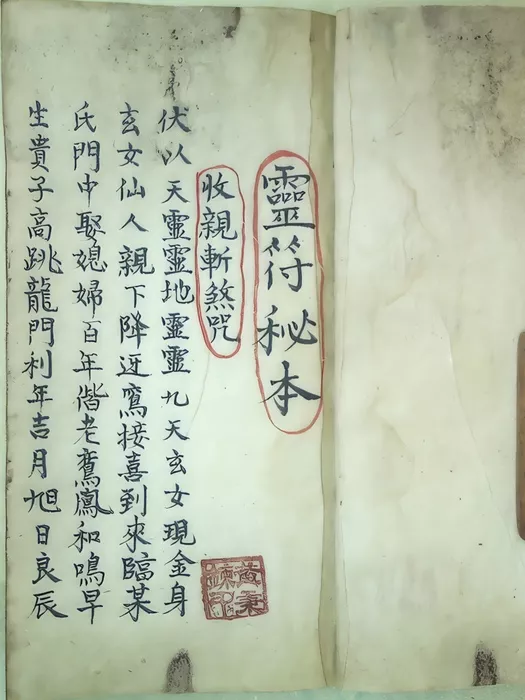 靈符秘本
收親斬煞咒
伏以天靈靈地靈靈九天玄女現金身
玄女仙人親下降迓鸞接喜到來臨某
氏門中娶媳婦百年偕老鸞鳳和鳴早
生貴子高跳龍門利年吉月旭日良辰